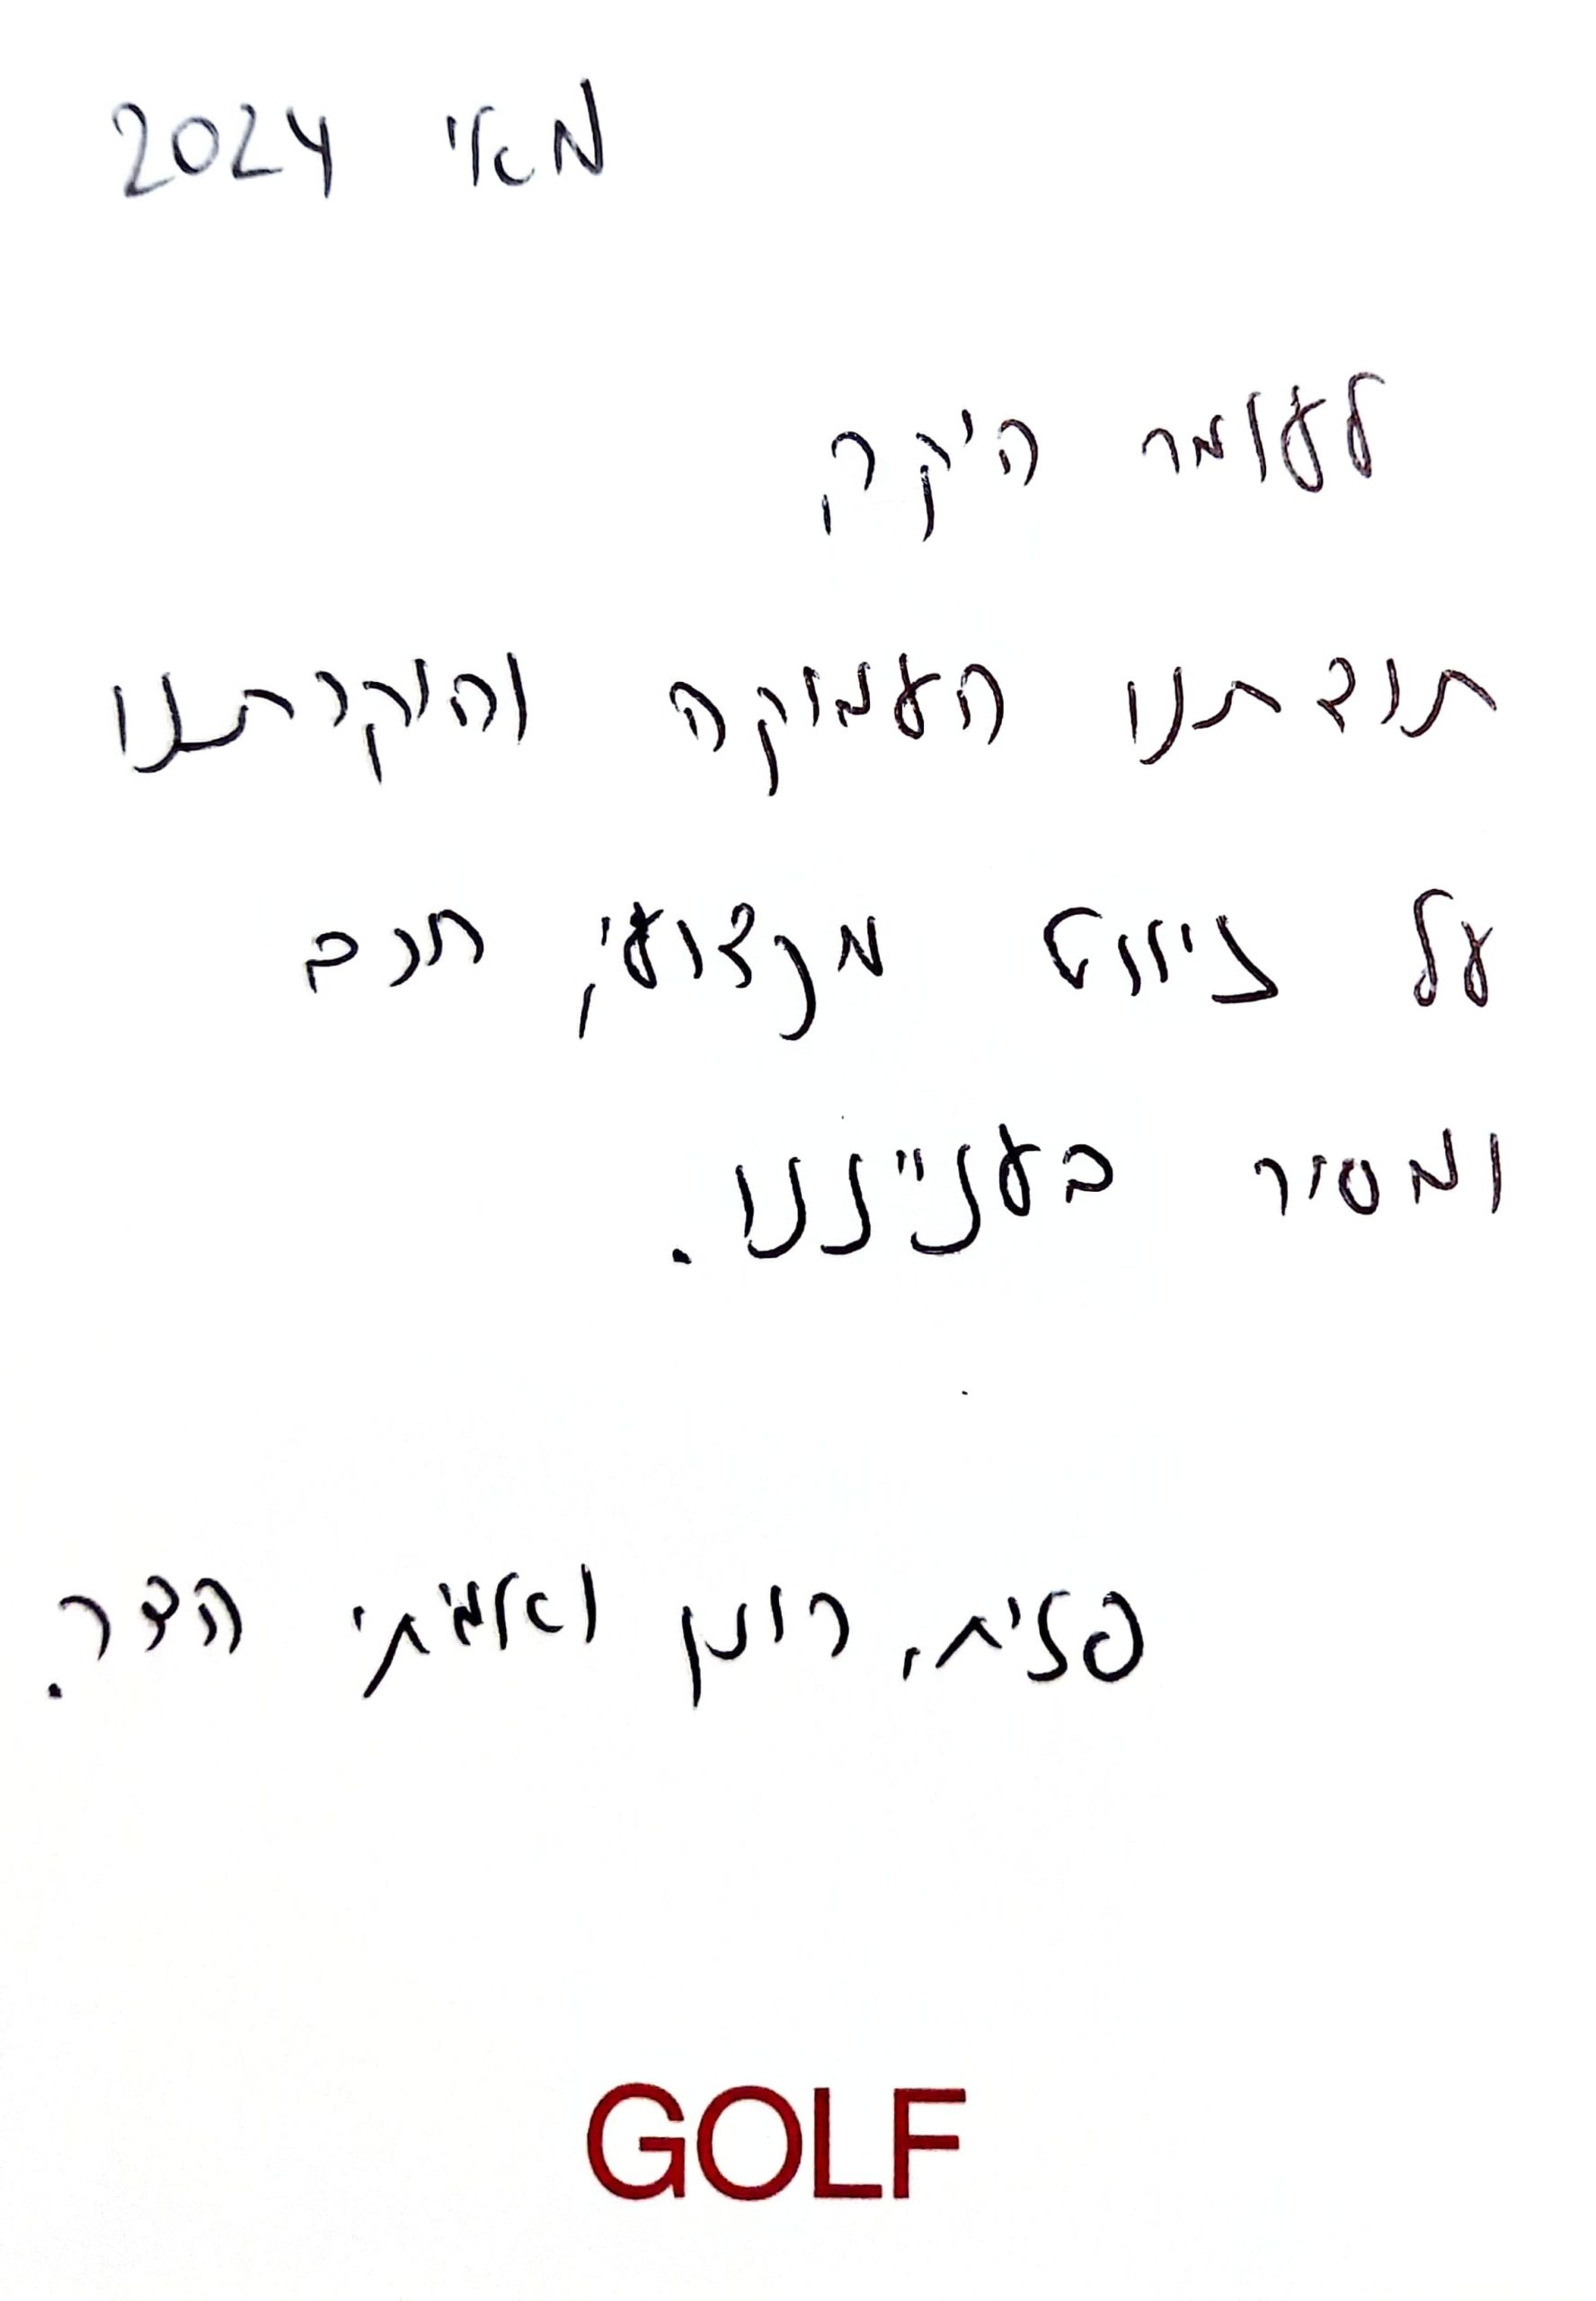 מאי 2024
לעומר היקר,
תודתנו העמוקה והוקרתנו
על ניווט מקצועי, חרב
ומסור בענייננו.
רונן ואמיתי הדר.
GOLF